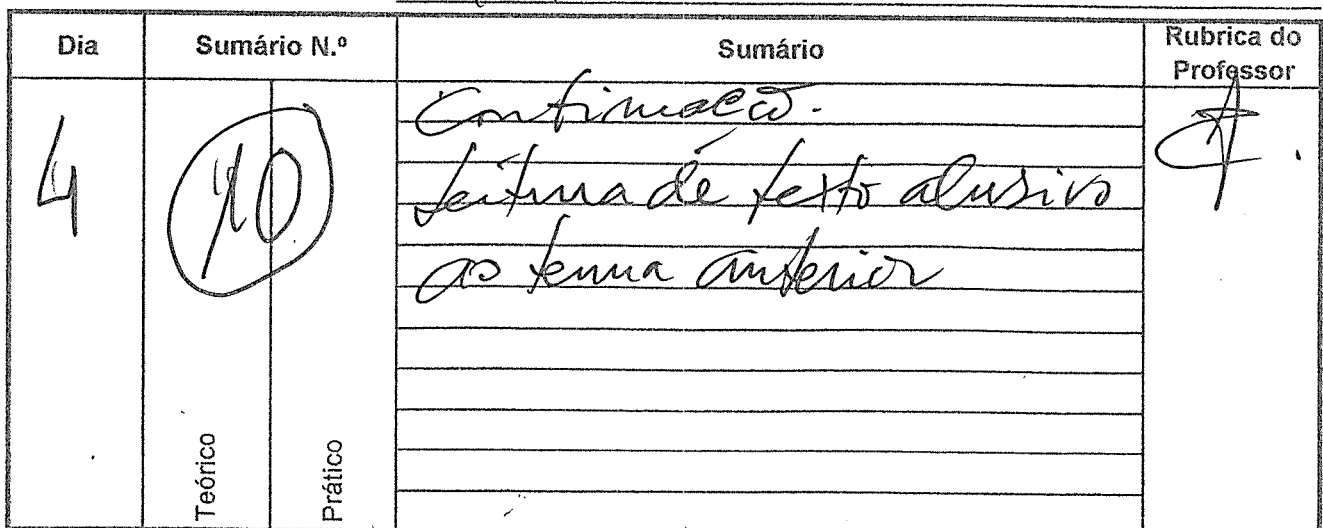 Dia Sumário N.º Sumário Rubrica do Professor
4 10 Continuação.
Leitura de texto alusivo
ao tema anterior
Teórico Prático